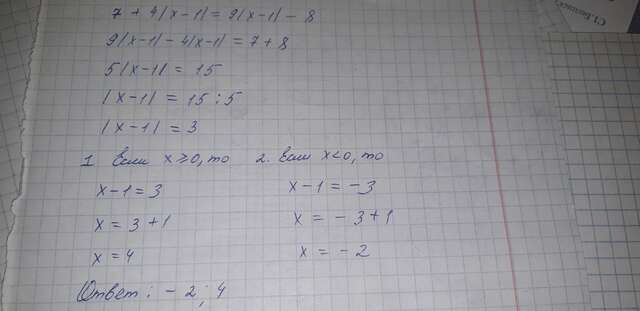 7 + 4|x-1| = 9|x-1| - 8
9|x-1| - 4|x-1| = 7+8
5|x-1| = 15
|x-1| = 15 : 5
|x-1| = 3
1 Если x≥0, то 2. Если x<0, то
x-1=3 x-1=-3
x = 3+1 x = -3+1
x = 4 x = -2
Ответ: -2; 4